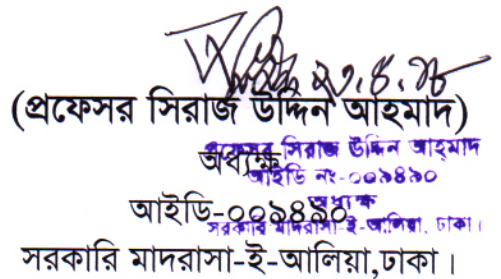 (প্রফেসর সিরাজ উদ্দিন আহমাদ)
অধ্যক্ষ
আইডি-০০৯৪৯০
সরকারি মাদরাসা-ই-আলিয়া,ঢাকা।
প্রফেসর সিরাজ উদ্দিন আহমাদ
আইডি নং-০০৯৪৯০
অধ্যক্ষ
সরকারি মাদরাসা-ই-আলিয়া, ঢাকা।